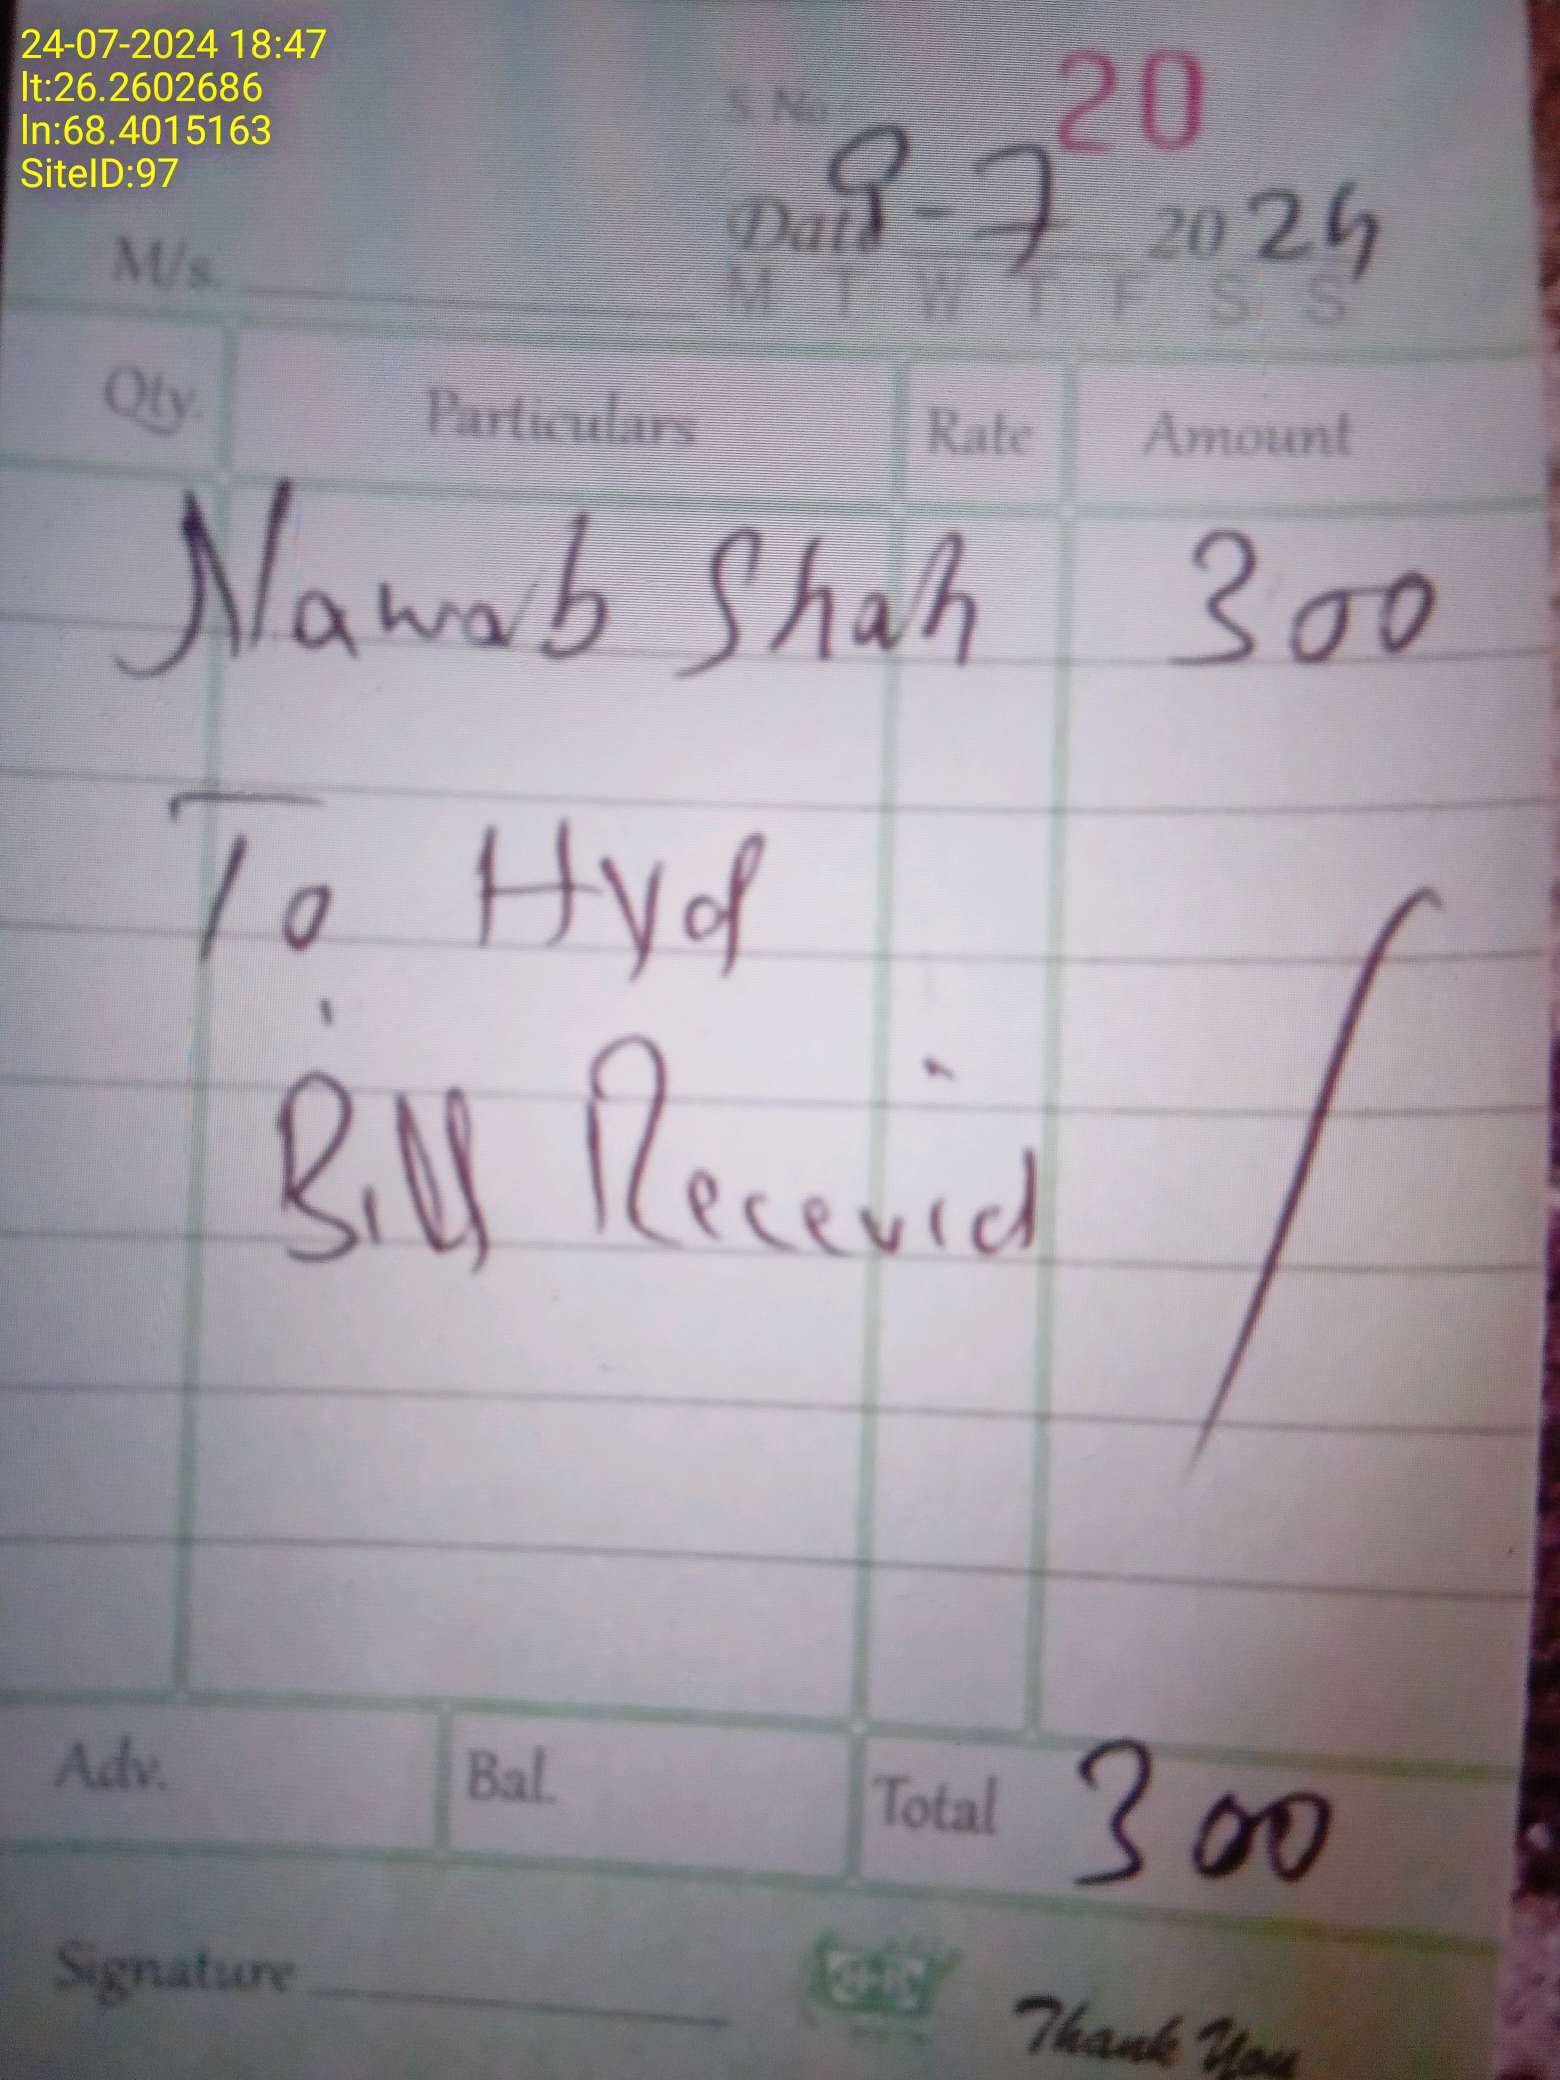 24-07-2024 18:47
lt:26.2602686
ln:68.4015163
SiteID:97
S.No. 20
Date 9-7 2024
M/s.
M T W T F S S
Qty. Particulars Rate Amount
Nawab Shah 300
To Hyd
Bill Recevid
Adv. Bal. Total 300
Signature
Thank You